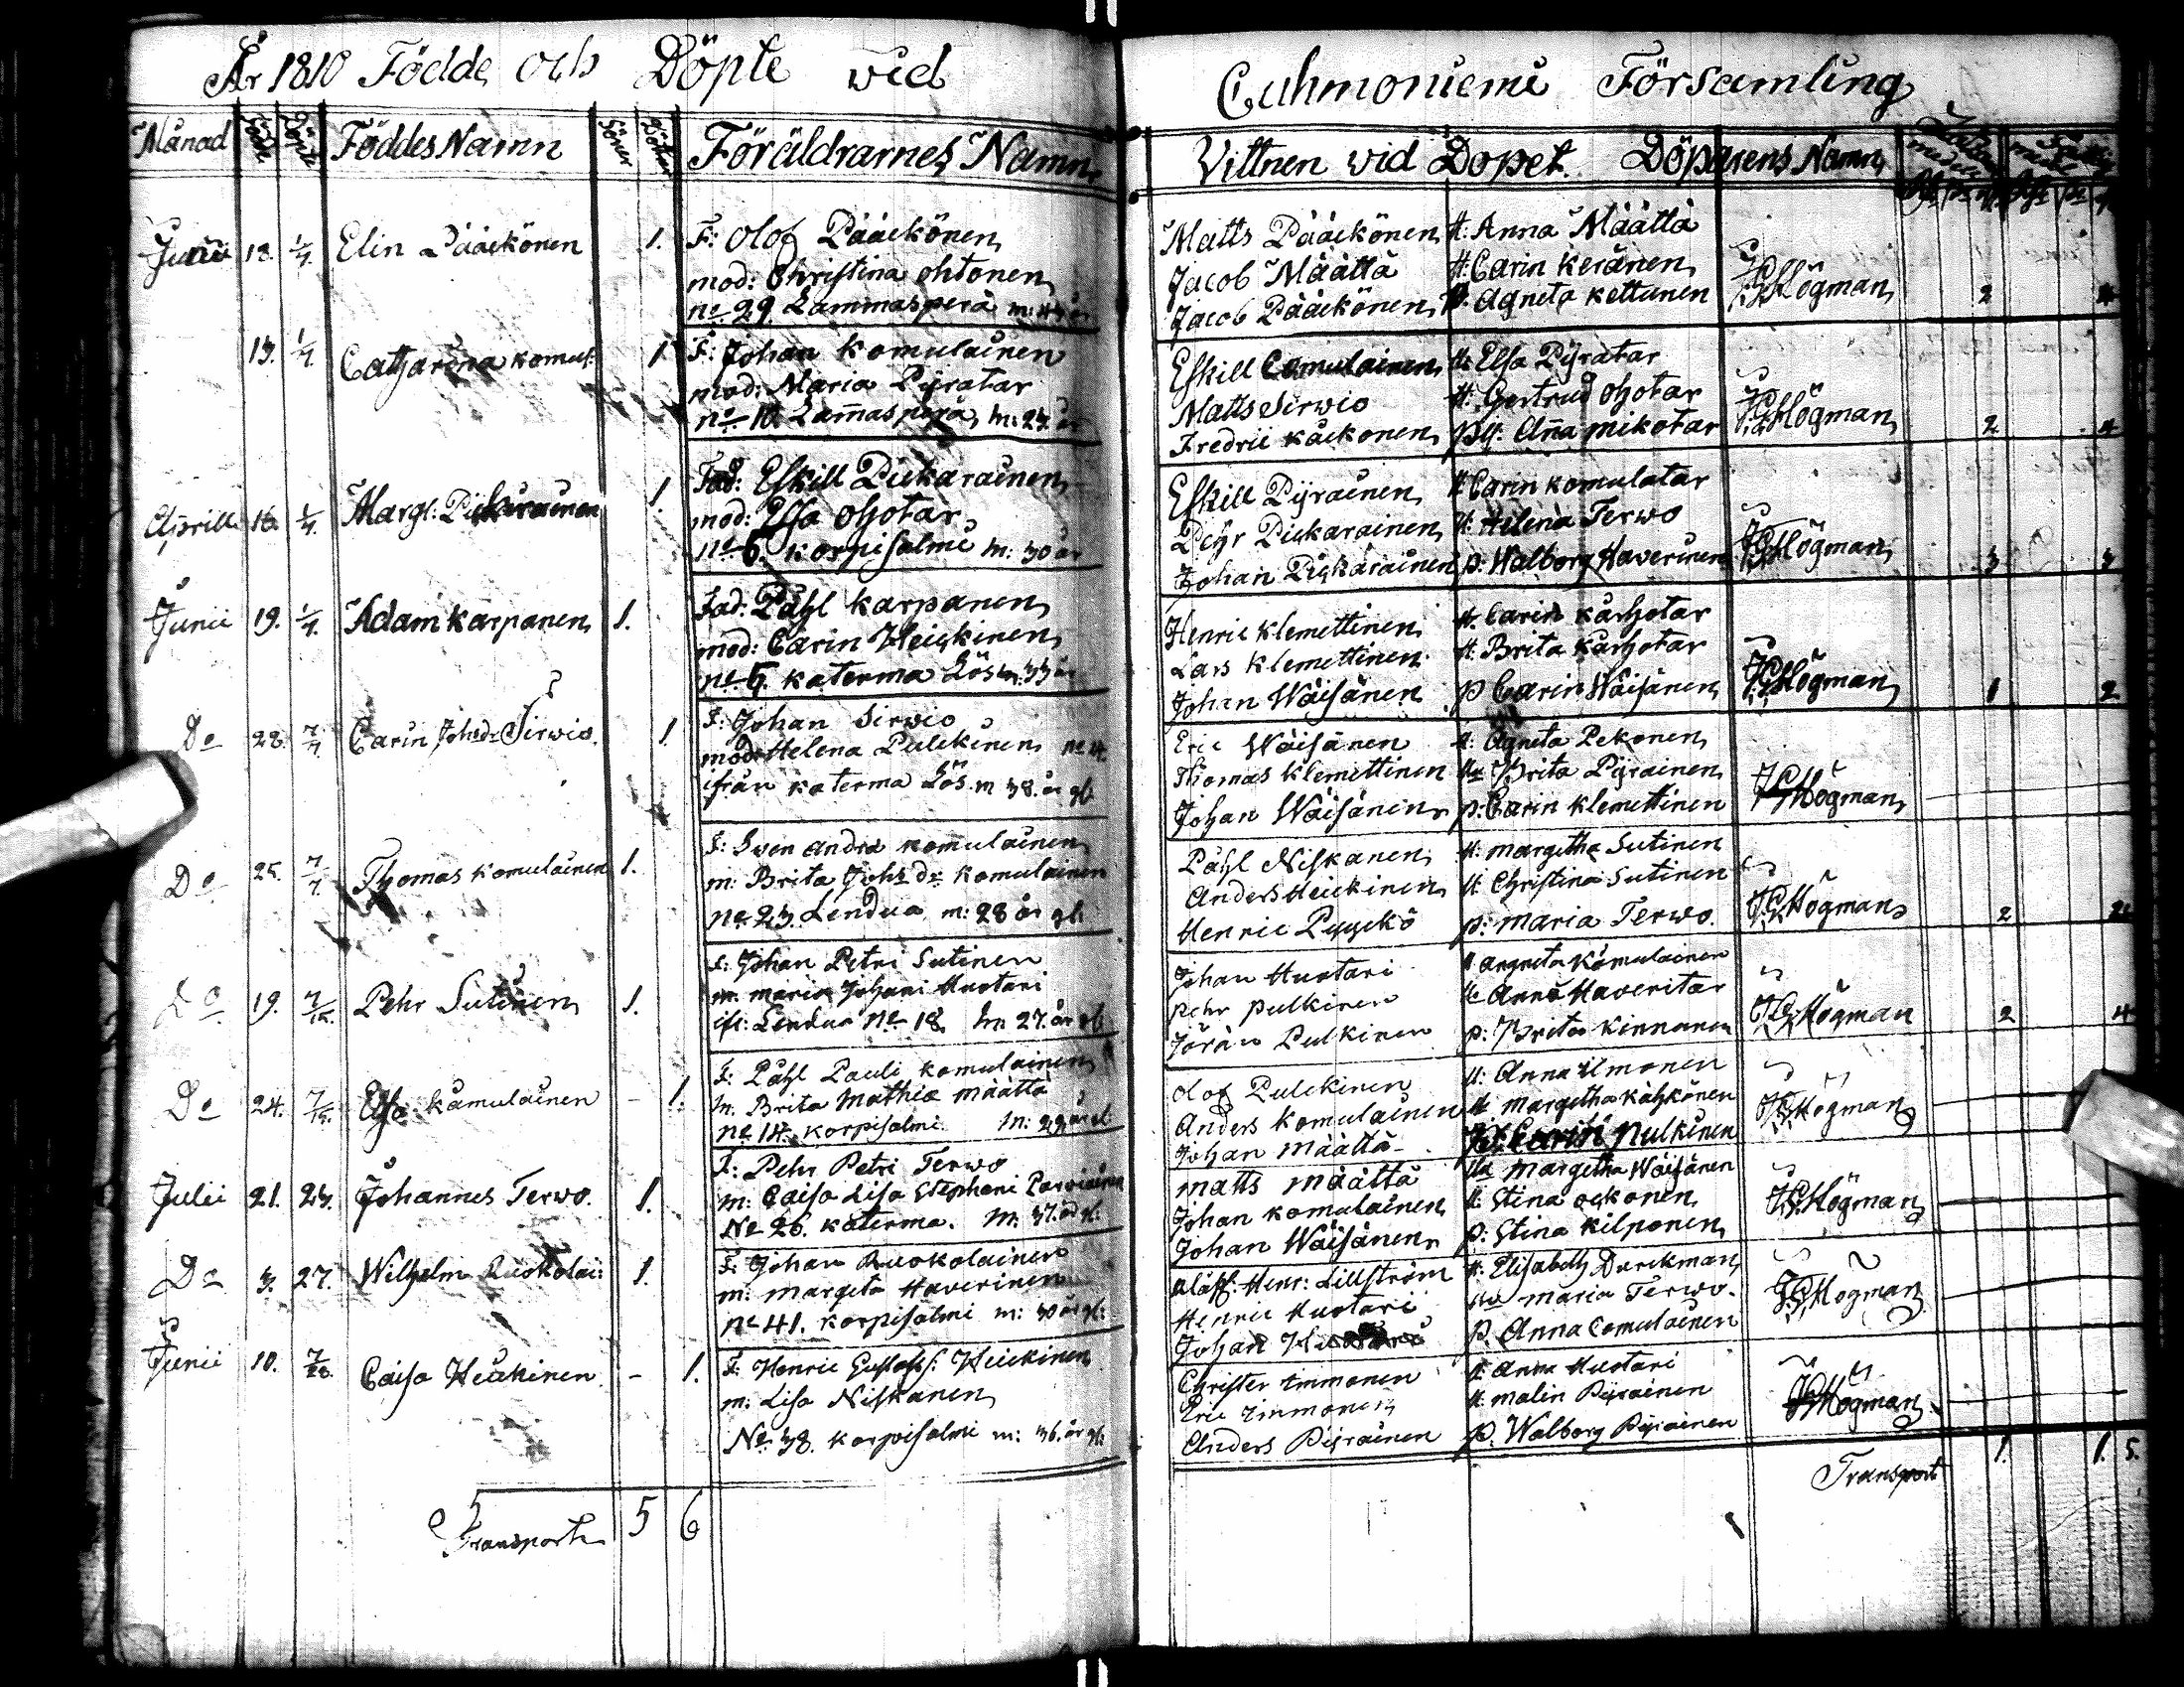 År 1810 Födde och Döpte vid
Månad Födde Döpte Föddes Namn Söner Döttrar Föräldrarnes Namn
Junii 13. 1/7. Elin Pääckönen 1. F: Olof Pääckönen
mod: Christina Ohtonen
no 29 Lammasperä m: 43 år
13. 1/7. Catharina Komul: 1. F: Johan Komulainen
mod: Maria Pyratar
no 10 Lam̄asperä, m: 24 år
Aprill 1/7. Margt: Pickarainen 1. Fad: Eskill Pickarainen
mod: Elsa Ohotar
no 6. Korpisalmi m: 30 år
Junii 19. 1/7. Adam Karpanen 1. Fad: Påhl Karpanen
mod: Carin Heickinen
no 5. Katerma Lös m: 33 år
Do 28. 7/7 Carin Johsdr Sirwio. 1. F: Johan Sirwio
mod: Helena Pulckinen no 4.
ifrån Katerma Lös. m 38. år gl.
Do 25. 7/7. Thomas Komulainen 1. F: Sven Andra Komulainen
m: Brita Johs dr Komulainen
no 23. Lendua m: 28 år gl.
Do 19. 7/15. Pehr Sutinen 1. F: Johan Petri Sutinen
m: Maria Johani Huotari
ifr: Lendua no 18. m 27. år gl
Do 24. 7/15. Elsa Kamulainen - 1. F: Påhl Pauli Komulainen
m. Brita Mathiæ Määttä
no 14. Korpisalmi. m: 29 år gl
Julii 21. 23. Johannes Terwo. 1. F: Pehr Petri Terwo
m: Caisa Lisa Stephani Parviainen
No 26. Katerma. m. 37. år gl.
Do 3. 27. Wilhelm Ruokolai: 1. F: Johan Ruokolainen
m: Margeta Haverinen
no 41. Korpisalmi m: 30 år gl:
Junii 10. 7/28. Caisa Heickinen - 1. F: Henric Gustafss: Heickinen
m: Lisa Niskanen
No 38. Korpisalmi m: 36. år gl.
Transport 5 6
Cuhmoniemi Församling
Vittnen vid Dopet. Döparens Namn
Matts Pääckönen H: Anna Määttä
Jacob Määttä H: Carin Keränen
Jacob Pääckönen P: Agneta Kettunen Högman 2 4
Eskill Comulainen H: Elsa Pyratar
Matts Sirwio H: Gertrud Ohotar
Fredric Käckonen pig: Anna Mikotar Högman 2 4
Eskill Pyrainen H: Carin Komulatar
Pehr Pickarainen H: Helena Terwo
Johan Pickarainen p: Walborg Haverinen Högman 3
Henric Klemettinen H. Carin Karhotar
Lars Klemettinen H: Brita Karhotar
Johan Wäisänen p Carin Wäisänen Högman 1 2
Eric Wäisänen H: Agneta Pekonen
Thomas Klemettinen H: Brita Pyrainen
Johan Wäisänen p: Carin Klemettinen Högman
Påhl Niskanen H: Margetha Sutinen
Anders Heickinen H Christina Sutinen
Henric Pyyckö p: Maria Terwo. Högman 2
Johan Huotari H Angneta Komulainen
Pehr Pulkinen H: Anna Haveritar
Jöran Pulkinen p: Brita Kinnunen Högman 2 4
Olof Pulckinen H: Anna Ilmonen
Anders Komulainen H Margetha Kähkönen
Johan Määttä pig: Carin Pulkinen Högman
Matts Määttä Ha Margetha Wäisänen
Johan Komulainen H: Stina Ockonen
Johan Wäisänen p: Stina Kilponen Högman
Henr: Lillström H: Elisabeth Durckman
Henric Huotari Maria Terwo.
Johan p. Anna Comulainen Högman
Christer Immonen H. Anna Huotari
Eric Immonen H Malin Pyrainen
Anders Pyrainen P. Walborg Pyrainen Högman
Transport 1. 1. 5.